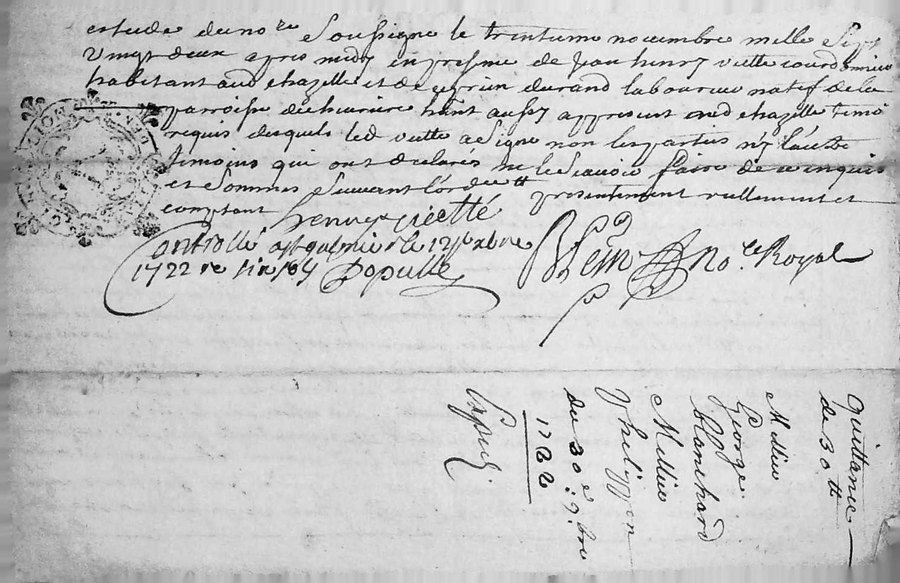 estude du no.re Soussigne le trentieme novembre mille Sept
Vingt deux apres midy en presence de Jean henry viette
habitant aud chazelle et de durand laboureur natif de la
parroisse habit aussy a present aud chazelle temo
requis desquels led viette a Signe non les partes ny l'autre
temoins qui ont declarés ne le Scavoir faire de ce enquis
et Sommes Suivant l'ordce presentement reellement et
comptant henry viette
Controllé le 12e xbre
1722 re Six Populle
no.re Royal
Quittance
de 30 tt
Mellier
George
blanchard
Mellier
Philippon
du 30e 9bre
1722
Expedi